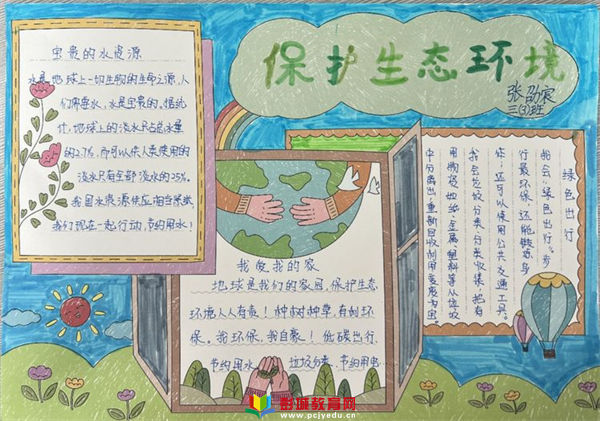 保护生态环境
张劭宸
三(3)班
宝贵的水资源
水是地球上一切生物的生命之源,人
们需要水,水是宝贵的。据统
计,地球上的淡水只占总水量
的2.7%,而可以供人类使用的
淡水只有全部淡水的25%。
我国水资源供应相当紧缺
我们现在一起行动,节约用水!
我爱我的家
地球是我们的家园,保护生态
环境人人有责!种树种草,有利环
保。我环保,我自豪!低碳出行
节约用水 垃圾分类 节约用电
绿色出行
我会绿色出行。步
行最环保还能锻炼身
体,还可以使用公共交通工具。
我会垃圾分类分类收集,把有
用物资如纸、金属、塑料等从垃圾
中分离出,重新回收利用变废为宝。
彭城教育网
www.pcjyedu.cn